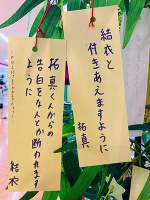 結衣と
付きあえますように
拓真
拓真くんからの
告白をなんとか断われます
ように
結衣